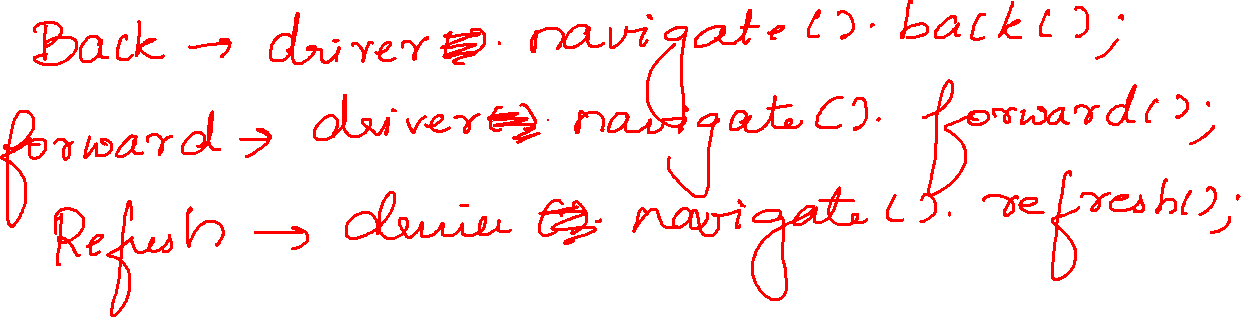 Back → driver. navigate(). back();
forward → driver. navigate(). forward();
Refresh → driver. navigate(). refresh();